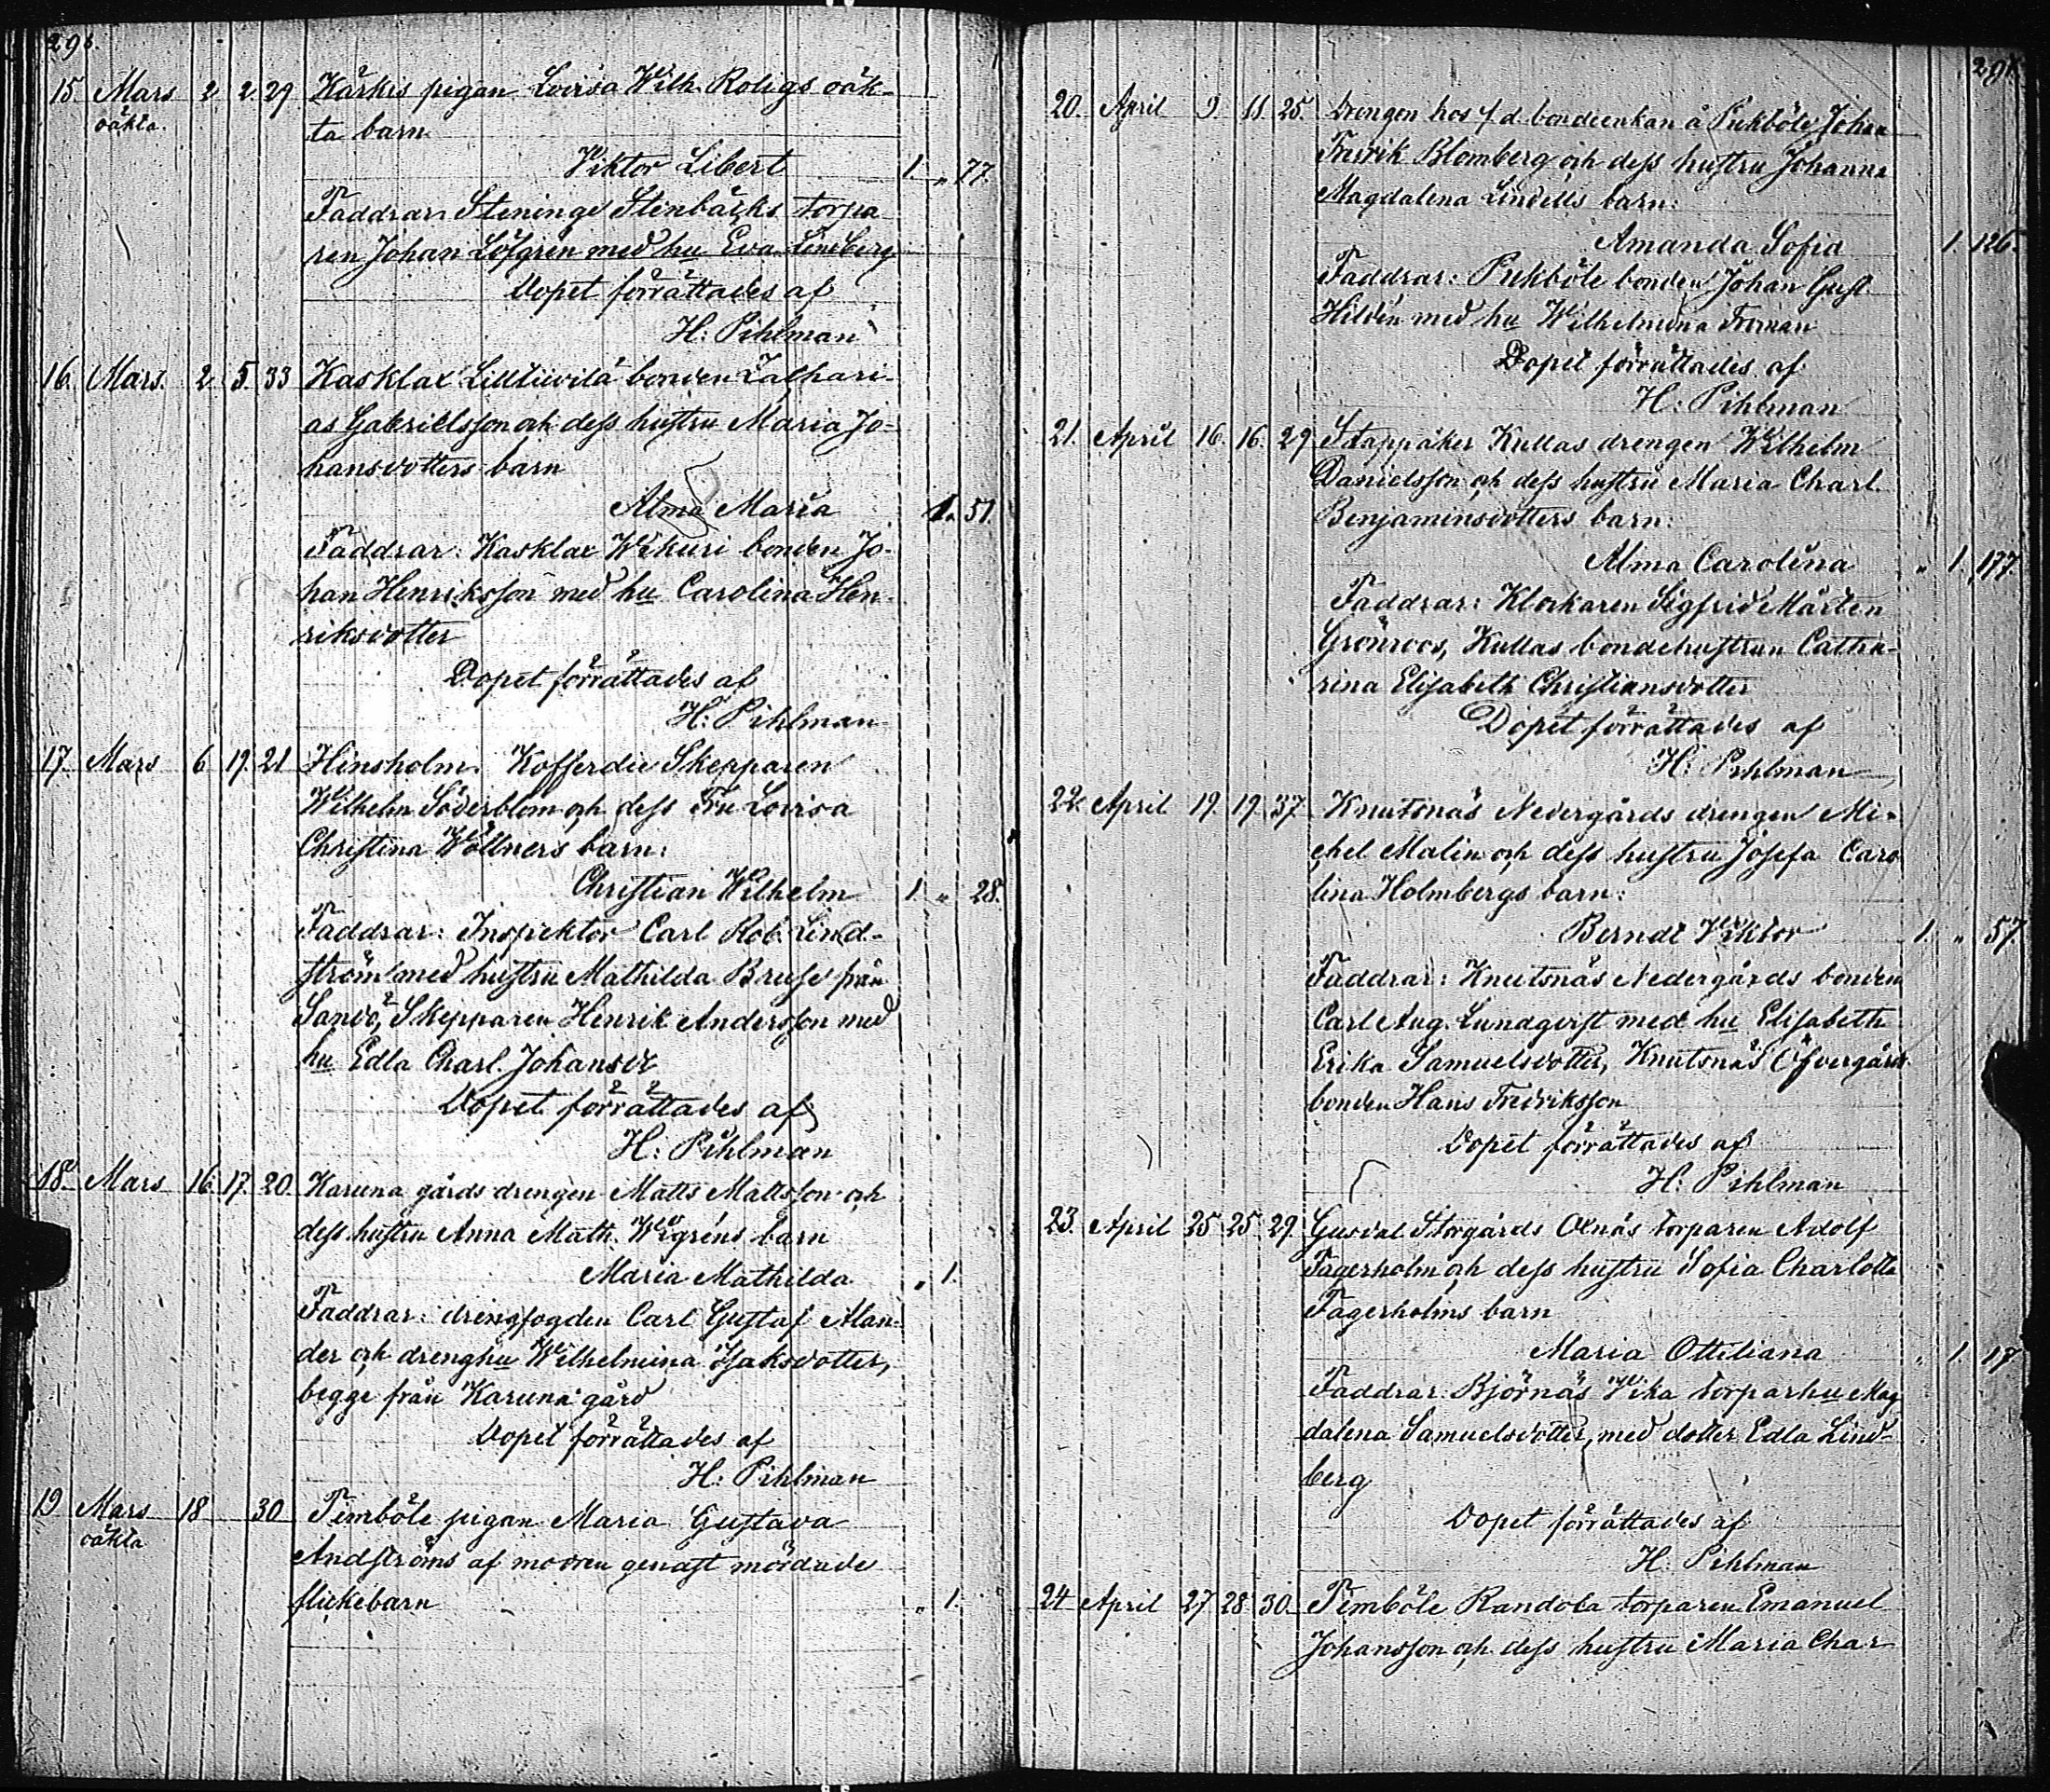 296.
15. Mars 2. 2. 29 Kärkis pigan Lovisa Wilh. Roligs oäk-
oäkta. ta barn
Viktor Libert 1. " 77.
Faddrar: Steninge Stenbäcks torpa
ren Johan Löfgrén med hu Eva Lindberg
Dopet förrättades af
H: Pihlman
16. Mars. 2. 5. 33 Kasklax Lilltiivilä bonden Zachari-
as Gabrielsson och dess hustru Maria Jo-
hansdotters barn
Alma Maria 1. 51.
Faddrar: Kasklax Wikuri bonden Jo-
han Henriksson med hu Carolina Hen-
riksdotter
Dopet förrättades af
H: Pihlman
17. Mars 6 19. 21 Hinsholm Kofferdie Skepparen
Wilhelm Söderblom och dess Fru Lovisa
Christina Wöllners barn:
Christian Wilhelm 1. " 28.
Faddrar: Inspektor Carl Rob. Lind-
ström med hustru Mathilda Bruse från
Sandö, Skepparen Henrik Andersson med
hu Edla Charl. Johansdr
Dopet förrättades af
H: Pihlman
18. Mars 16. 17. 20. Karuna gårds drengen Matts Mattsson och
dess hustru Anna Math. Wigréns barn
Maria Mathilda " 1.
Faddrar: drengfogden Carl Gustaf Alan-
der och drenghu Wilhelmina Isaksdotter,
begge från Karuna gård
Dopet förrättades af
H: Pihlman
19 Mars 18 30 Pemböle pigan Maria Gustava
oäkta Andströms af modren genast mördade
flickebarn " 1.
20. April 9. 11. 25. Drengen hos f d. bondeenkan å Pukböle Johan
Fredrik Blomberg och dess hustru Johanna
Magdalena Lindells barn:
Amanda Sofia 1. 126.
Faddrar: Pukböle bonden Johan Gust.
Hildén med hu Wilhelmina Froman
Dopet förrättades af
H: Pihlman
21. April 16. 16. 29 Stappåker Kullas drengen Wilhelm
Danielsson och dess hustru Maria Charl.
Benjaminsdotters barn:
Alma Carolina " 1. 177.
Faddrar: Klockaren Sigfrid Mårten
Grönroos, Kullas bondehustrun Catha-
rina Elisabeth Christiansdotter
Dopet förrättades af
H: Pihlman
22. April 19. 19. 37. Knutsnäs Nedergårds drengen Mi-
chel Malin och dess hustru Josefa Caro
lina Holmbergs barn:
Berndt Viktor 1. " 57.
Faddrar: Knutsnäs Nedergårds bonden
Carl Aug. Lundqvist med hu Elisabeth
Erika Samuelsdotter, Knutsnäs Öfvergårds
bonden Hans Fredriksson
Dopet förrättades af
H: Pihlman
23. April 25 25. 29. Gusdal Storgårds Alnäs torparen Adolf
Fagerholm och dess hustru Sofia Charlotta
Fagerholms barn
Maria Ottiliana " 1. 17
Faddrar: Björnäs Vika torparhu Mag
dalena Samuelsdotter, med dotter Edla Lind-
berg
Dopet förrättades af
H. Pihlman
24 April 27 28 30. Pemböle Randola torparen Emanuel
Johansson och dess hustru Maria Char